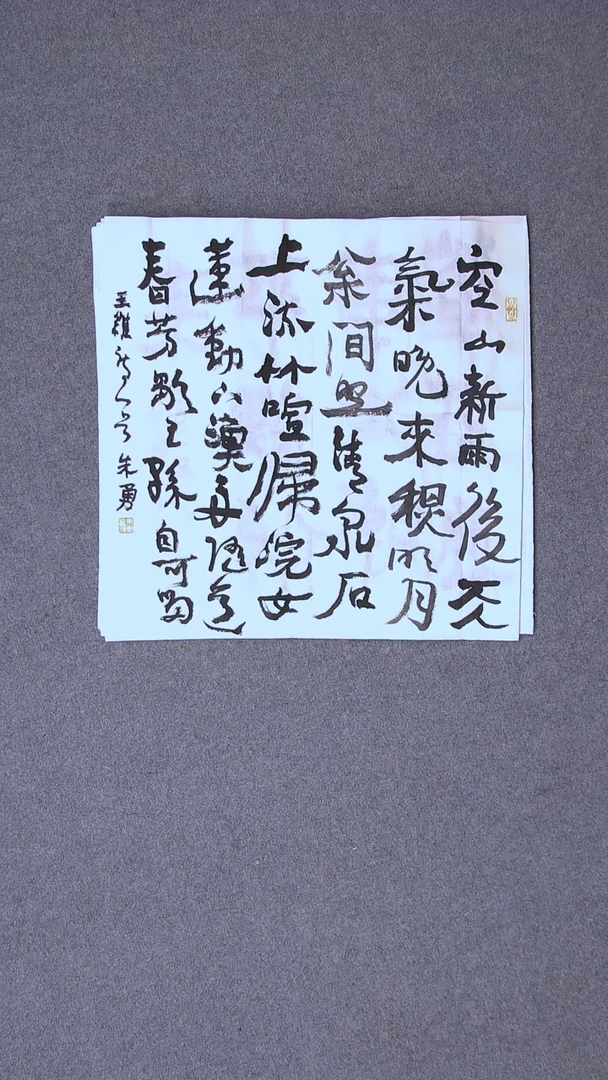 空山新雨後天
氣晚來秋明月
枀間照清泉石
上流竹喧歸浣女
蓮動下漁舟随意
春芳歇王孫自可留
王維詩一首 朱勇